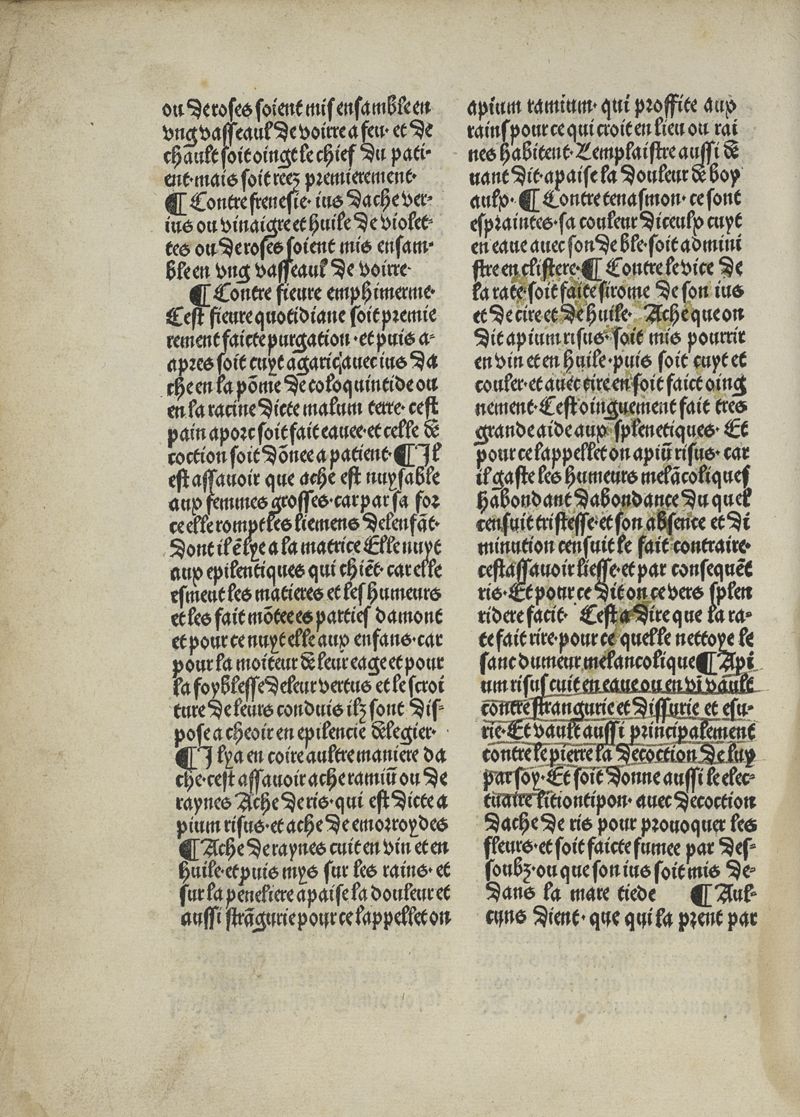 ou de roses soient mis ensamble en
vng vasseaul de voirre a feu· et de
chault soit oingt le chief du pati·
ent·mais soit reez premierement·
¶ Contre frenesie· ius dache ver·
ius ou vinaigre et huile de violet·
tes ou de roses soient mis ensam·
ble en vng vasseaul de voirre·
¶ Contre fieure emphimerme·
Cest fieure quotidiane soit premie
rement faicte purgation·et puis a·
apres soit cuyt agaric auec ius da
che en la põme de coloquintide ou
en la racine dicte malum terre· cest
pain a porc soit fait eauee·et celle de
coction soit dõnee a patient·¶ Il
est assauoir que ache est nuysable
aux femmes grosses·car par sa for
ce elle rompt les liemens de lenfãt·
dont il ẽ lye a la matrice Elle nuyt
aux epilentiques qui chiẽt· car elle
esment les matieres et les humeurs
et les fait mõtee es parties damont
et pour ce nuyt elle aux enfans·car
pour la moiteur de leur eage et pour
la foyblesse de leur vertus et lestroi
ture de leurs conduis ilz sont dis-
pose a cheoir en epilencie de legier·
¶ Il ya en coire aultre maniere da
che·cest assauoir ache ramiũ ou de
raynes Ache de ris·qui est dicte a
pium risus·et ache de emorroydes
¶ Ache de raynes cuit en vin et en
huile·et puis mys sur les rains· et
sur la peneliere apaise la douleur et
aussi strãgurie pour ce lappellet on
apium ramium· qui proffite aux
rains pour ce qui croit en lieu ou rai
nes habitent· Lemplaistre aussi de
uant dit·apaise la douleur de boy
aulx·¶ Contre tenasmon· ce sont
espraintes·sa couleur diceulx cuyt
en eaue auec son de ble·soit admini
stre en clistere·¶ Contre le vice de
la rate·soit faite sirome de son ius
et de cire et de huile· Ache que on
dit apium risus· soit mis pourrir
en vin et en huile·puis soit cuyt et
couler·et auec cire en soit faict oing
nement·Cest oinguement fait tres
grande aide aux splenetiques· Et
pour ce lappellet on apiũ risus· car
il gaste les humeurs melãcoliques
habondant dabondance du quel
censuit tristesse·et son absence et di
minution censuit le fait contraire·
cest assauoir liesse·et par consequẽt
ris·Et pour ce dit on ce vers splen
ridere facit· Cest a dire que la ra-
te fait rire·pour ce quelle nettoye le
sanc dumeur melancolique¶ Api
um risus cuit en eaue ou en vĩ vault
contre strangurie et dissurie et esu-
rie·Et vault aussi principalement
contre le pierre la decoction de luy
par soy·Et soit donne aussi le elec-
tuaire litiontipon· auec decoction
dache de ris pour prouoquer les
fleurs·et soit faicte fumee par des-
soubz·ou que son ius soit mis de-
dans la mare tiede ¶ Aul-
cuns dient· que qui la prent par